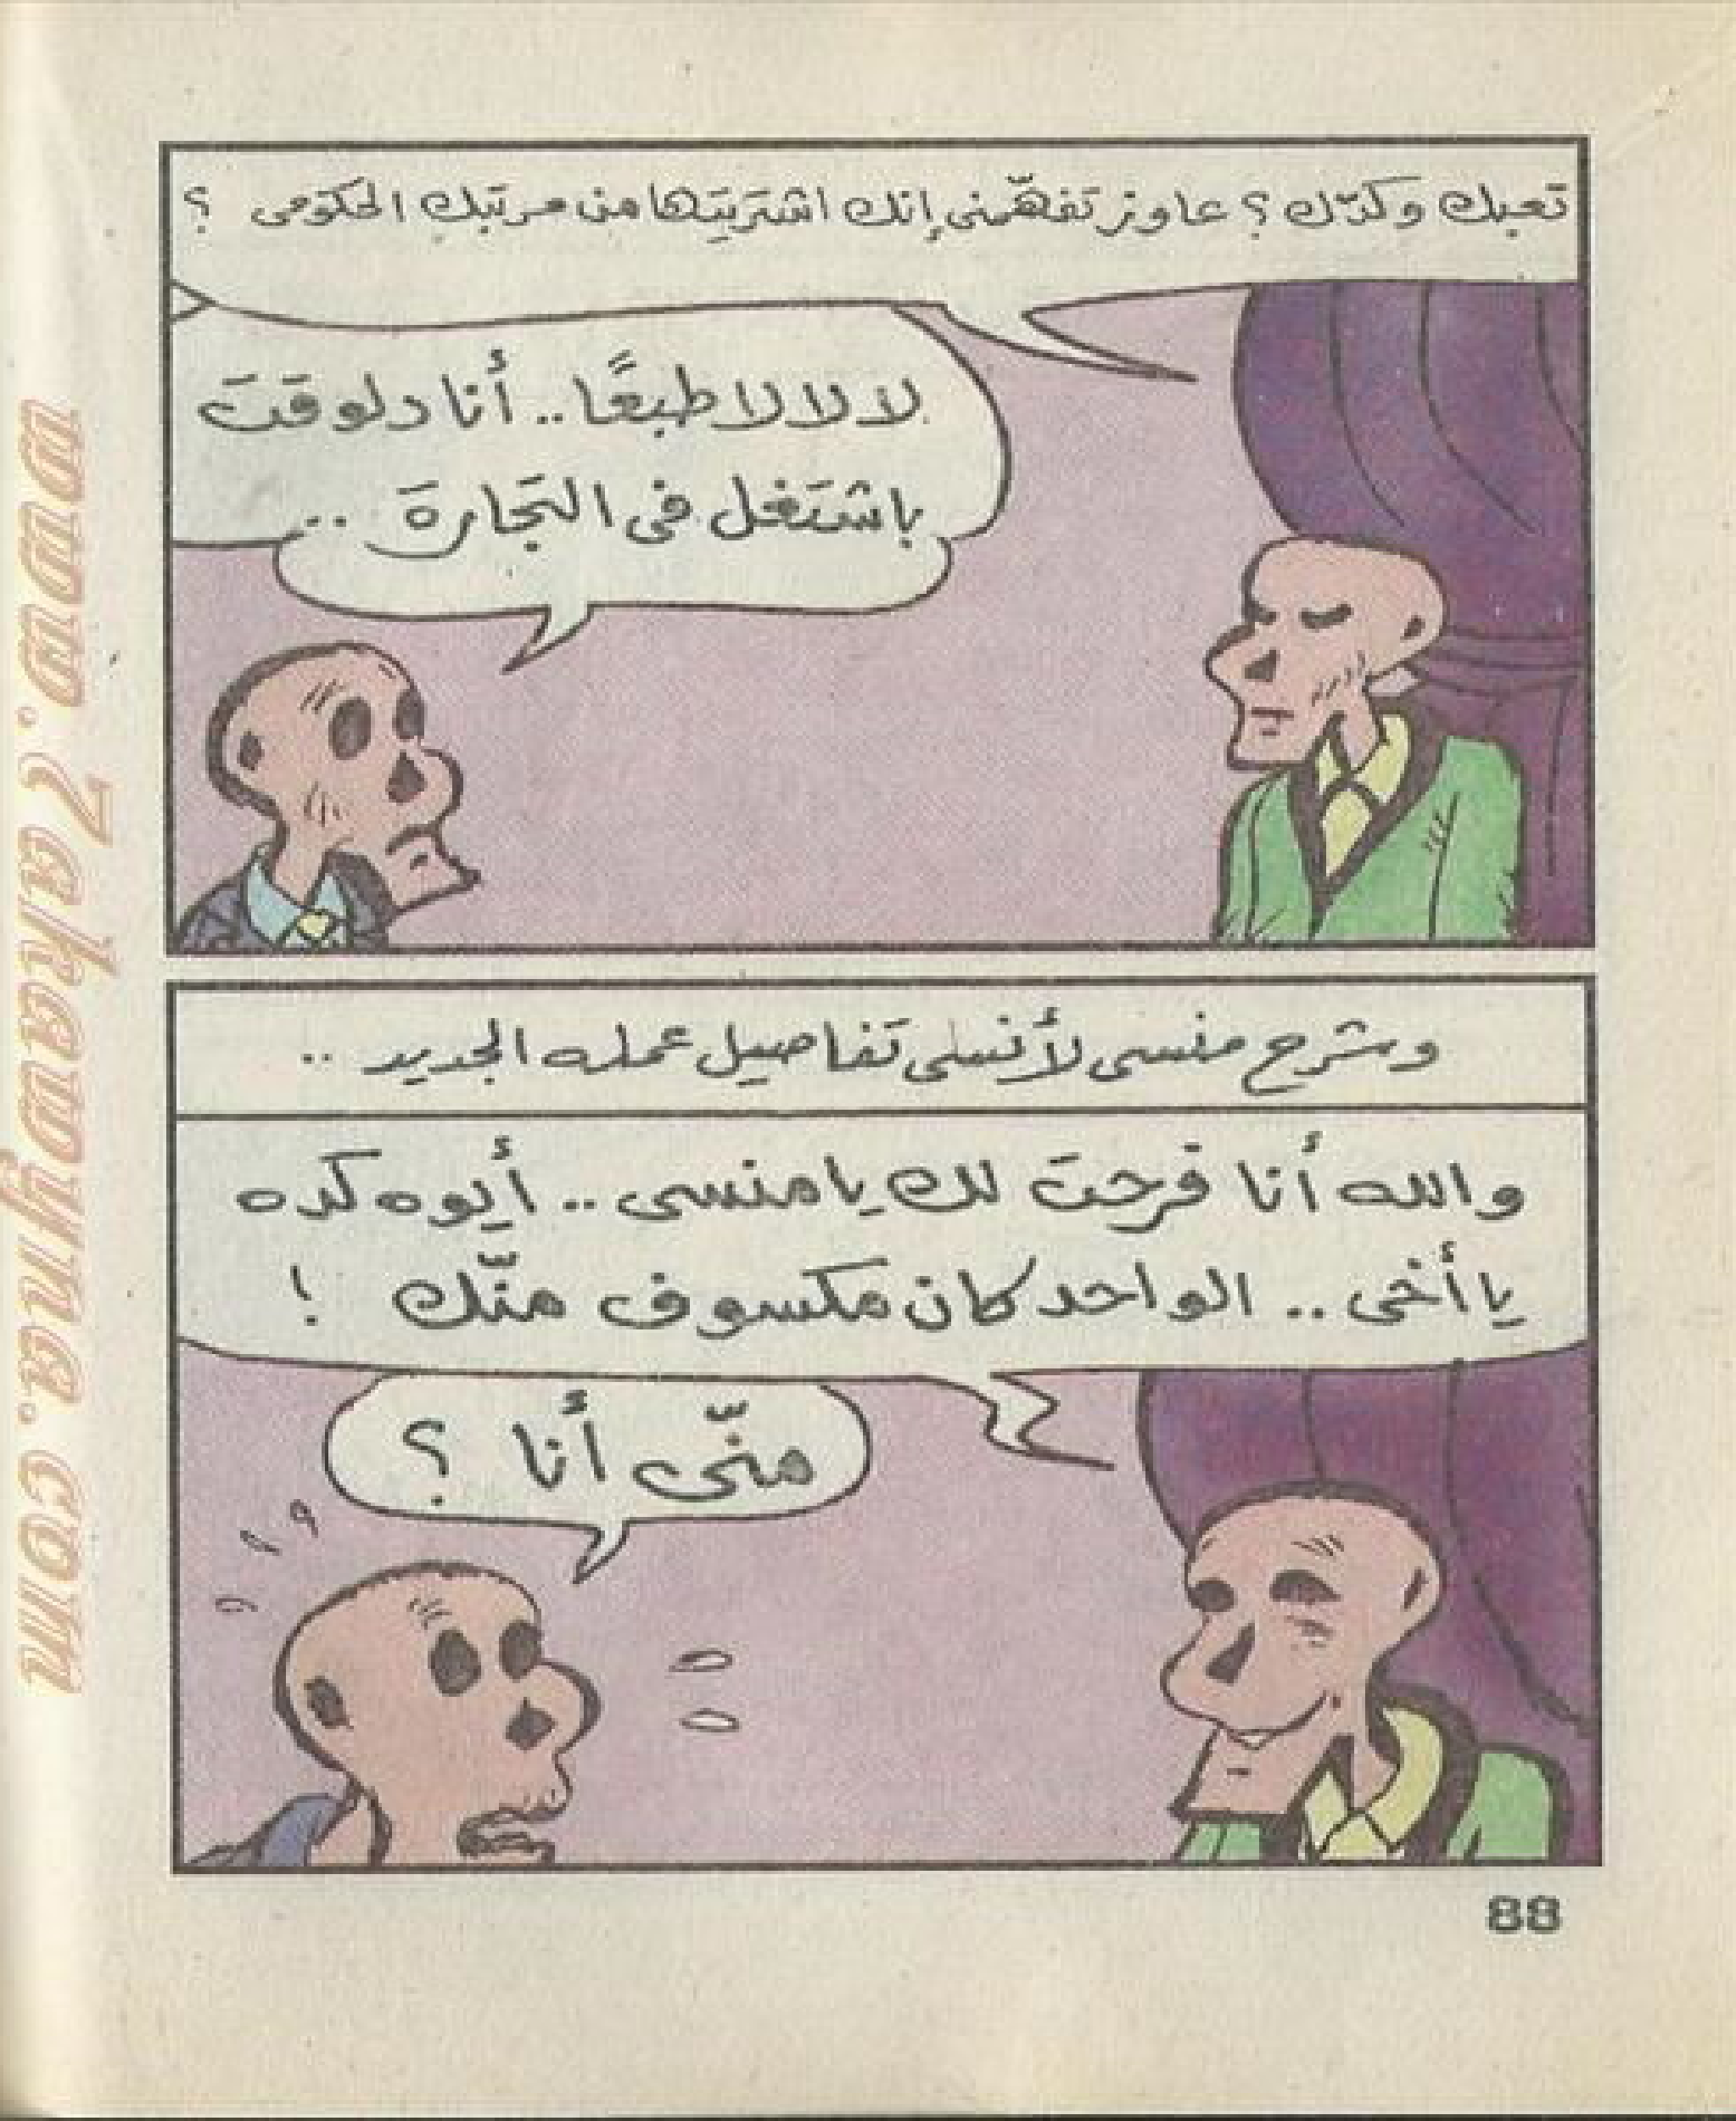 تعبك وكدّك ؟ عاوز تفهّمنى إنك اشتريتها من مرتبك الحكومى ؟
لا لا لا طبعًا .. أنا دلوقت
باشتغل فى التجارة ..
وشرح منسى لأنسى تفاصيل عمله الجديد ..
والله أنا فرحت لك يا منسى .. أيوه كده
يا أخى .. الواحد كان مكسوف منّك !
منّى أنا ؟
88
www.Zakrawyna.com